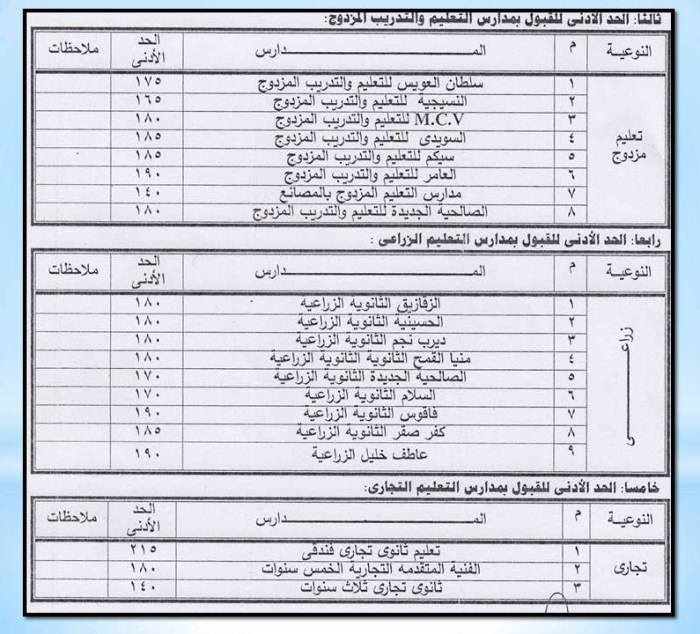 ثالثا: الحد الأدنى للقبول بمدارس التعليم والتدريب المزدوج:
النوعية م المـــدارس الحد الأدنى ملاحظات
تعليم مزدوج
١ سلطان العويس للتعليم والتدريب المزدوج ١٧٥
٢ النسيجية للتعليم والتدريب المزدوج ١٦٥
٣ M.C.V للتعليم والتدريب المزدوج ١٨٠
٤ السويدى للتعليم والتدريب المزدوج ١٨٥
٥ سيكم للتعليم والتدريب المزدوج ١٨٥
٦ العامر للتعليم والتدريب المزدوج ١٩٠
٧ مدارس التعليم المزدوج بالمصانع ١٤٠
٨ الصالحية الجديدة للتعليم والتدريب المزدوج ١٨٠
رابعا: الحد الأدنى للقبول بمدارس التعليم الزراعى :
النوعية م المـــدارس الحد الأدنى ملاحظات
زراعـــى
١ الزقازيق الثانوية الزراعية ١٨٠
٢ الحسينية الثانوية الزراعية ١٨٠
٣ ديرب نجم الثانوية الزراعية ١٨٠
٤ منيا القمح الثانوية الثانوية الزراعية ١٨٠
٥ الصالحية الجديدة الثانوية الزراعية ١٧٠
٦ السلام الثانوية الزراعية ١٧٠
٧ فاقوس الثانوية الزراعية ١٩٠
٨ كفر صقر الثانوية الزراعية ١٨٥
٩ عاطف خليل الزراعية ١٩٠
خامسا: الحد الأدنى للقبول بمدارس التعليم التجارى:
النوعية م المـــدارس الحد الأدنى ملاحظات
تجارى
١ تعليم ثانوى تجارى فندقى ٢١٥
٢ الفنية المتقدمه التجارية الخمس سنوات ١٨٠
٣ ثانوى تجارى ثلاث سنوات ١٤٠